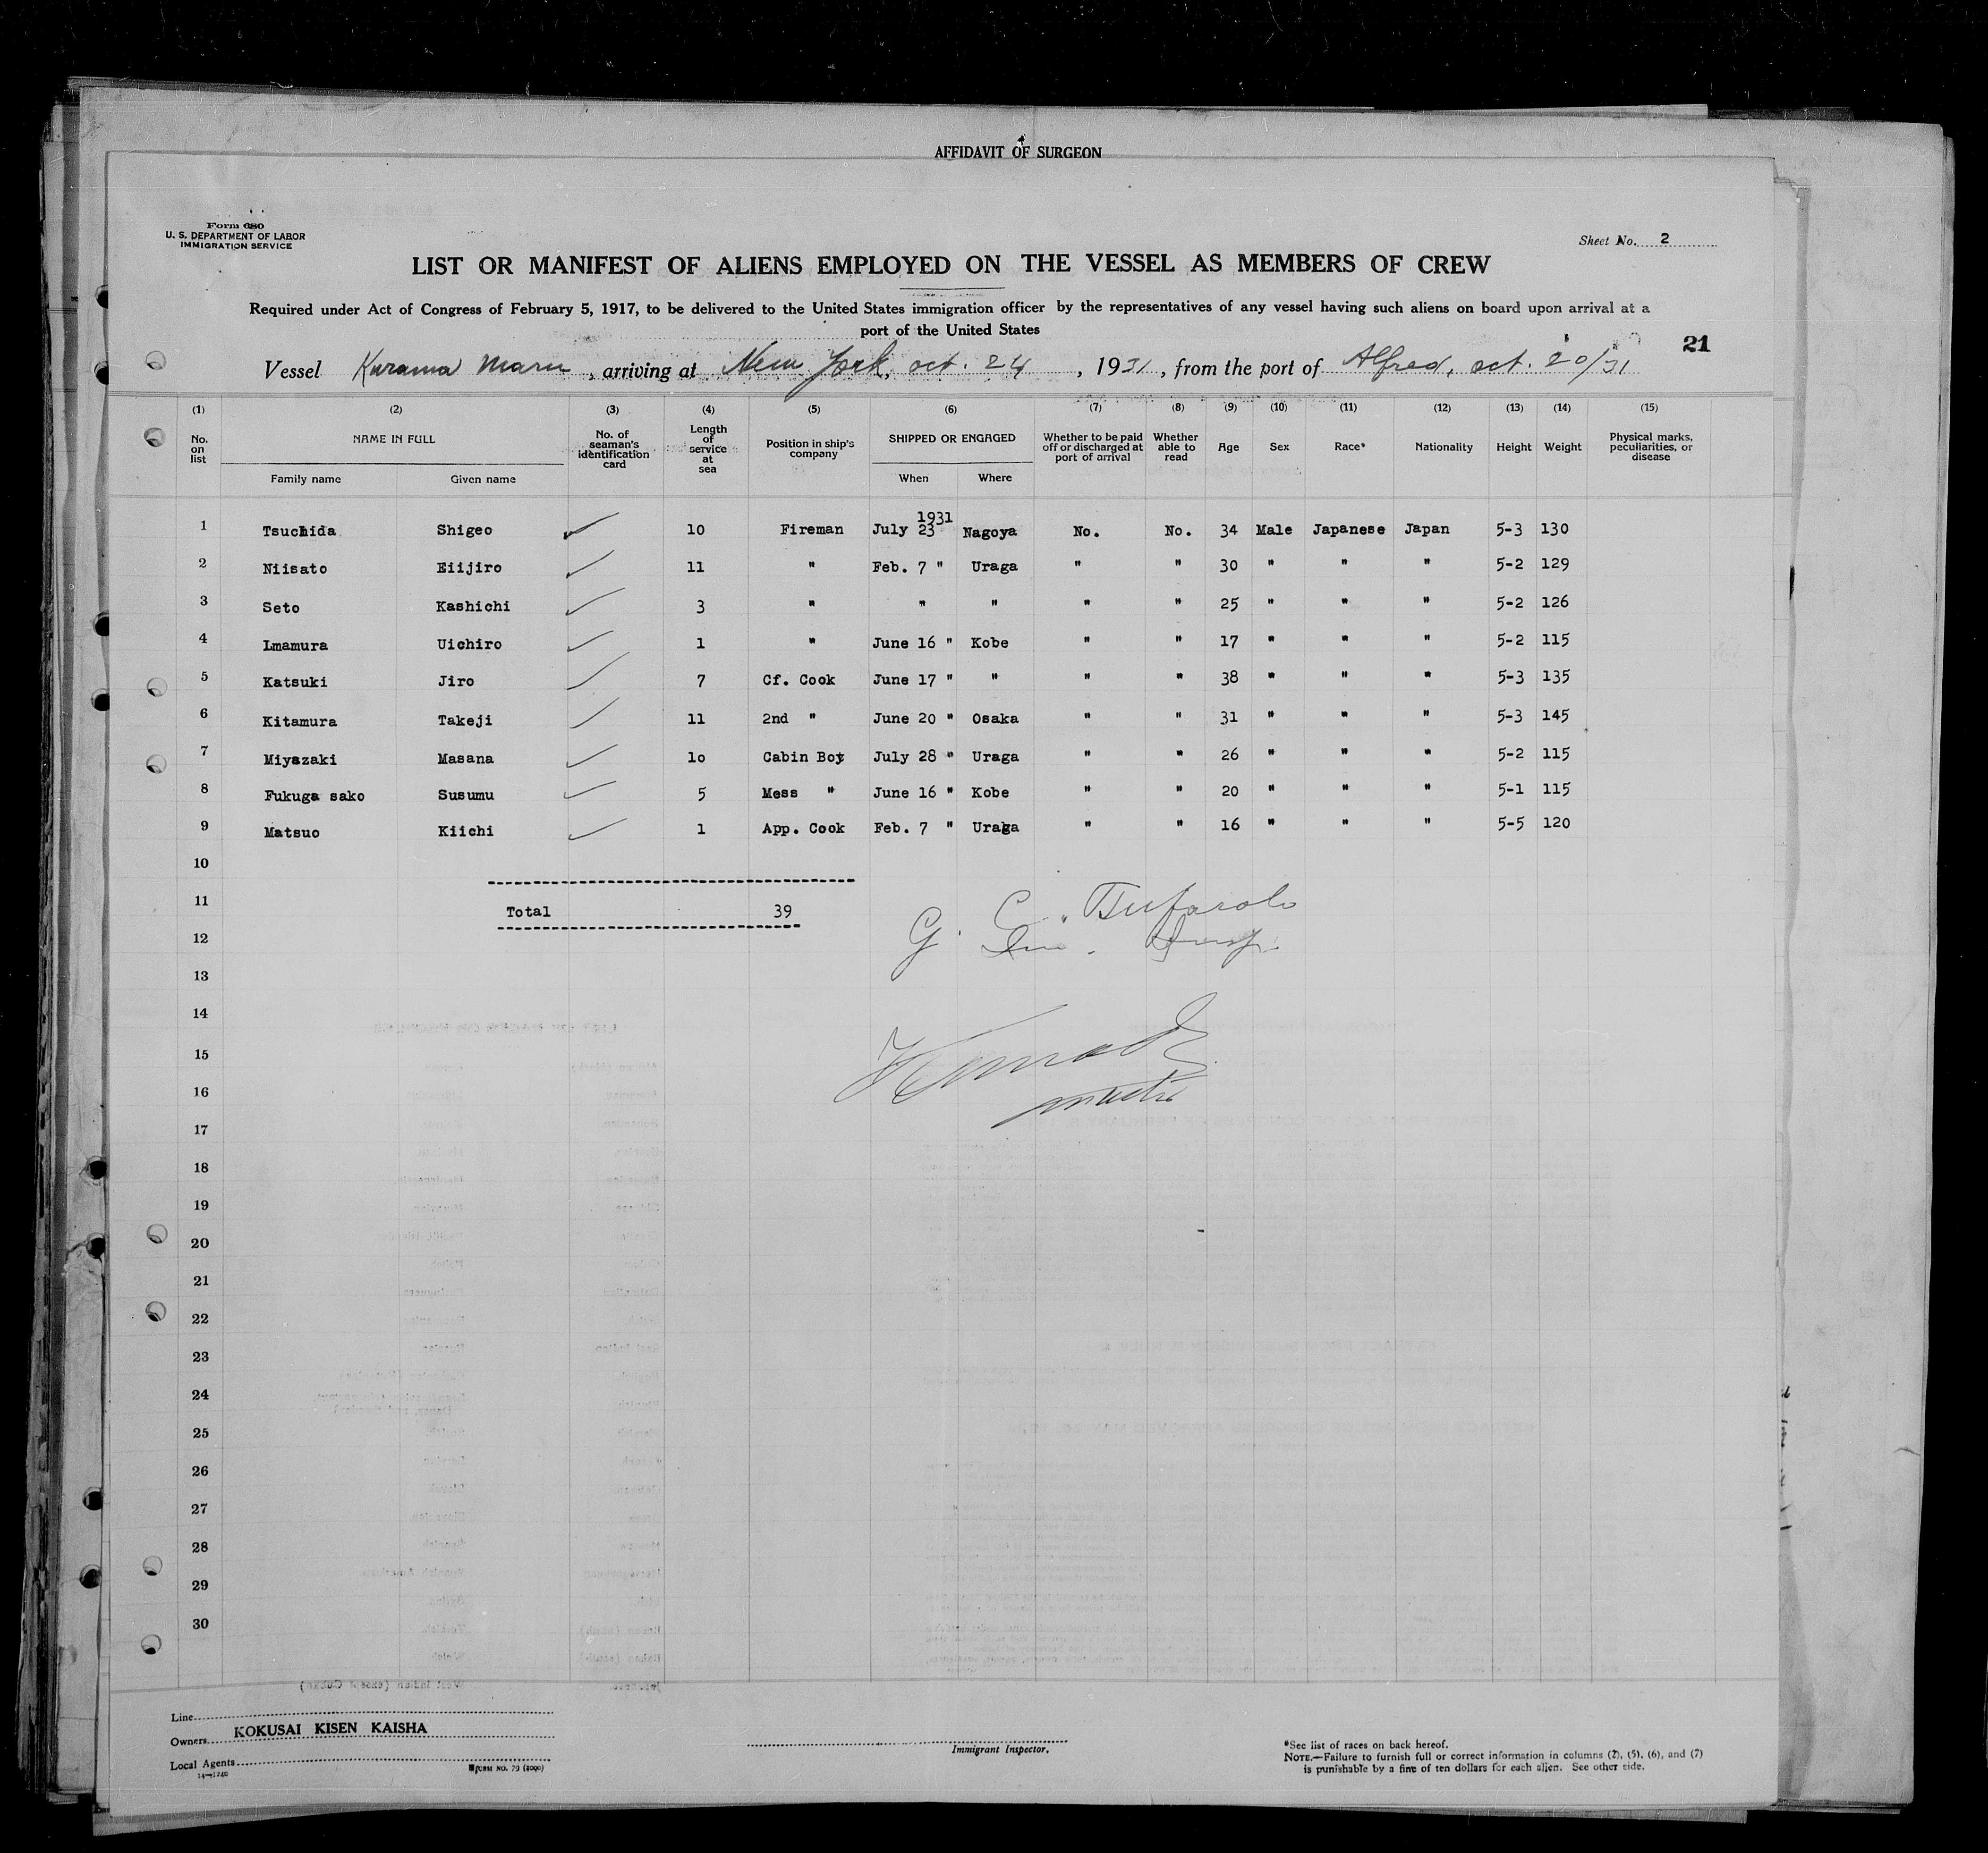 AFFIDAVIT OF SURGEON
Form 680
U. S. DEPARTMENT OF LABOR
IMMIGRATION SERVICE
Sheet No. 2
LIST OR MANIFEST OF ALIENS EMPLOYED ON THE VESSEL AS MEMBERS OF CREW
Required under Act of Congress of February 5, 1917, to be delivered to the United States immigration officer by the representatives of any vessel having such aliens on board upon arrival at a
port of the United States
21
Vessel Kurama Maru, arriving at New York, oct. 24, 1931, from the port of Alfred, oct. 20/31
(1) (2) (3) (4) (5) (6) (7) (8) (9) (10) (11) (12) (13) (14) (15)
No. on list NAME IN FULL No. of seaman's identification card Length of service at sea Position in ship's company SHIPPED OR ENGAGED Whether to be paid off or discharged at port of arrival Whether able to read Age Sex Race* Nationality Height Weight Physical marks, peculiarities, or disease
Family name Given name When Where
1931
1 Tsuchida Shigeo ✓ 10 Fireman July 23 Nagoya No. No. 34 Male Japanese Japan 5-3 130
2 Niisato Eiijiro ✓ 11 " Feb. 7 " Uraga " " 30 " " " 5-2 129
3 Seto Kashichi ✓ 3 " " " " " 25 " " " 5-2 126
4 Lmamura Uichiro ✓ 1 " June 16 " Kobe " " 17 " " " 5-2 115
5 Katsuki Jiro ✓ 7 Cf. Cook June 17 " " " " 38 " " " 5-3 135
6 Kitamura Takeji ✓ 11 2nd " June 20 " Osaka " " 31 " " " 5-3 145
7 Miyazaki Masana ✓ 1o Cabin Boy July 28 " Uraga " " 26 " " " 5-2 115
8 Fukuga sako Susumu ✓ 5 Mess " June 16 " Kobe " " 20 " " " 5-1 115
9 Matsuo Kiichi ✓ 1 App. Cook Feb. 7 " Uraga " " 16 " " " 5-5 120
10
11 Total 39
12
13
14
15
16
17
18
19
20
21
22
23
24
25
26
27
28
29
30
Line
Owners KOKUSAI KISEN KAISHA
Local Agents
14—1240
FORM NO. 79 (2000)
Immigrant Inspector.
*See list of races on back hereof.
NOTE.—Failure to furnish full or correct information in columns (2), (5), (6), and (7)
is punishable by a fine of ten dollars for each alien. See other side.